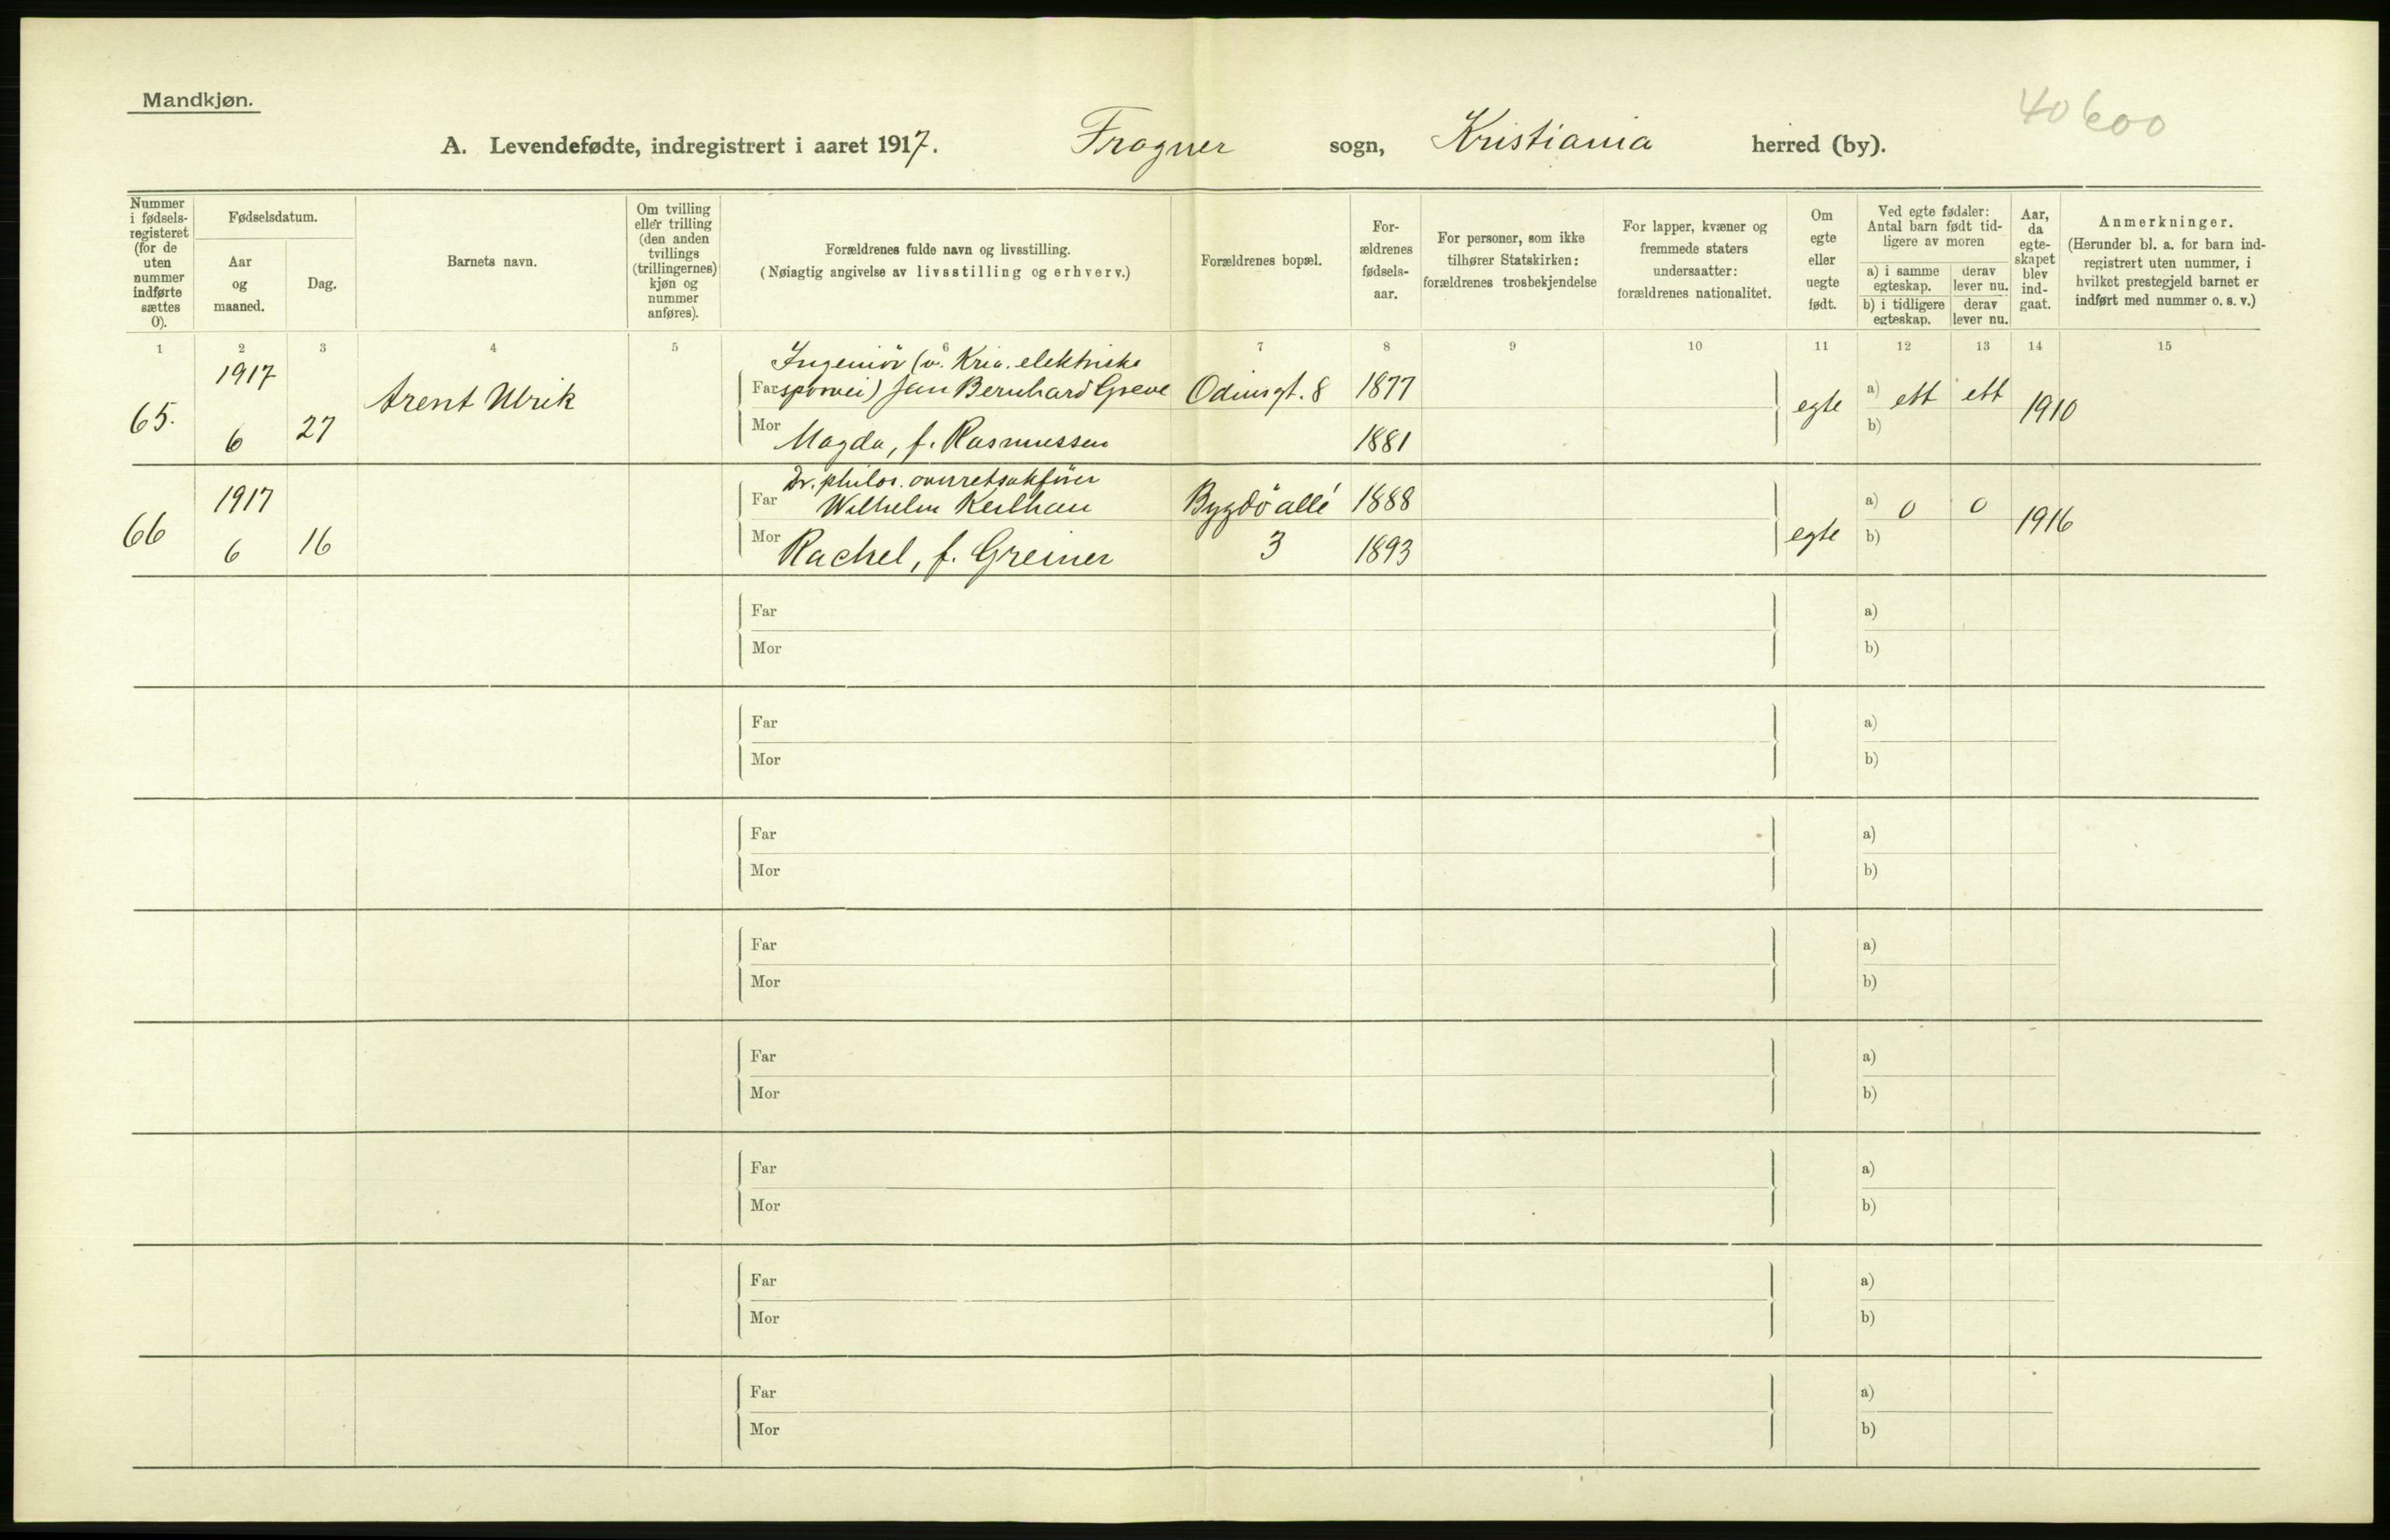 Mandkjøn.
40600
A. Levendefødte, indregistrert i aaret 1917. Frogner sogn, Kristiania herred (by).
Nummer i fødsels-registeret (for de uten nummer indførte sættes 0).
Fødselsdatum.
Aar og maaned.
Dag.
Barnets navn.
Om tvilling eller trilling (den anden tvillings (trillingernes) kjøn og nummer anføres).
Forældrenes fulde navn og livsstilling.
(Nøiagtig angivelse av livsstilling og erhverv.)
Forældrenes bopæl.
For-ældrenes fødsels-aar.
For personer, som ikke tilhører Statskirken: forældrenes trosbekjendelse
For lapper, kvæner og fremmede staters undersaatter: forældrenes nationalitet.
Om egte eller uegte født.
Ved egte fødsler: Antal barn født tid-ligere av moren
a) i samme egteskap.
derav lever nu.
b) i tidligere egteskap.
derav lever nu.
Aar, da egte-skapet blev ind-gaat.
Anmerkninger.
(Herunder bl. a. for barn ind-registrert uten nummer, i hvilket prestegjeld barnet er indført med nummer o. s. v.)
1 2 3 4 5 6 7 8 9 10 11 12 13 14 15
65. 1917 6 27 Arent Ulrik
Ingeniör (v. Kria. elektriske
Far sporvei) Jan Bernhard Greve Odinsgt. 8 1877
Mor Magda, f. Rasmussen 1881
egte a) ett ett b) 1910
66 1917 6 16
Dr. philos. overretssakfører
Far Wilhelm Keilhau Bygdö allé 1888
Mor Rachel, f. Greiner 3 1893
egte a) 0 0 b) 1916
Far a)
Mor b)
Far a)
Mor b)
Far a)
Mor b)
Far a)
Mor b)
Far a)
Mor b)
Far a)
Mor b)
Far a)
Mor b)
Far a)
Mor b)